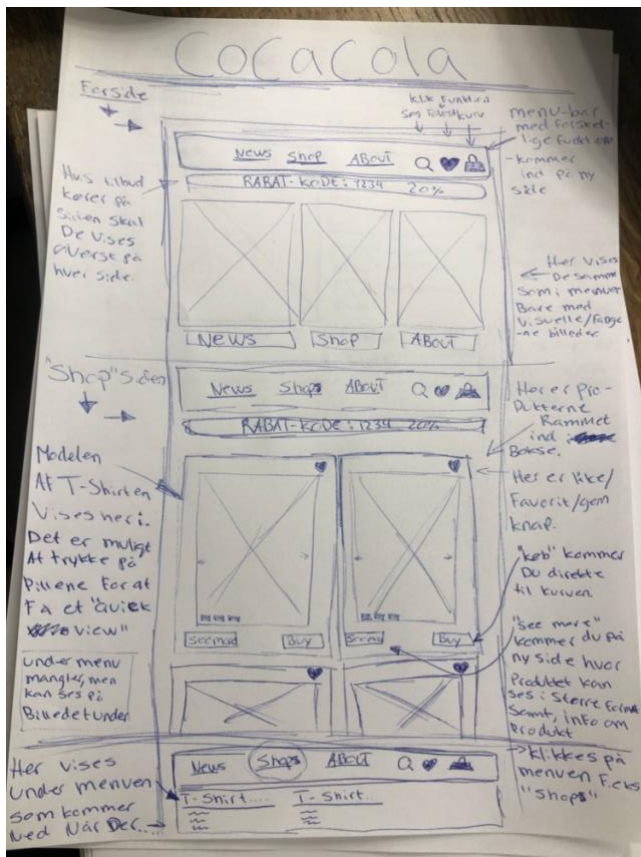 CocaCola
Forside
Klik Funktion
Søg Favorit kurv
menu-bar
med forskel-
lige funktioner
- kommer
ind på ny
side
News Shop About
RABAT-KODE: 1234 20%
Hvis tilbud
kører på
siden skal
De vises
øverst på
hver side.
Her vises
De samme
som i menuen
Bare med
visuelle/fange
-ne billeder
News Shop About
"Shop" Siden
News Shops About
RABAT-KODE: 1234 20%
Her er pro-
Dukterne
Rammet
ind i
Bokse.
Modelen
Af T-Shirten
Vises her i.
Det er muligt
At trykke på
Pillene For at
Få et "Quick
view"
Her er like/
Favorit/gem
knap.
"køb" kommer
Du direkte
til kurven
Buy
Buy
"See more"
kommer du på
ny side hvor
Produktet kan
ses i Større format
Samt, info om
Produkt
under menu
mangler, men
kan ses på
Billedet under
-> klikkes på
menuen F.eks
"Shops"
News Shops About
Her vises
under menuen
som kommer
Ned Når Der...
T-Shirt.... T-Shirt..